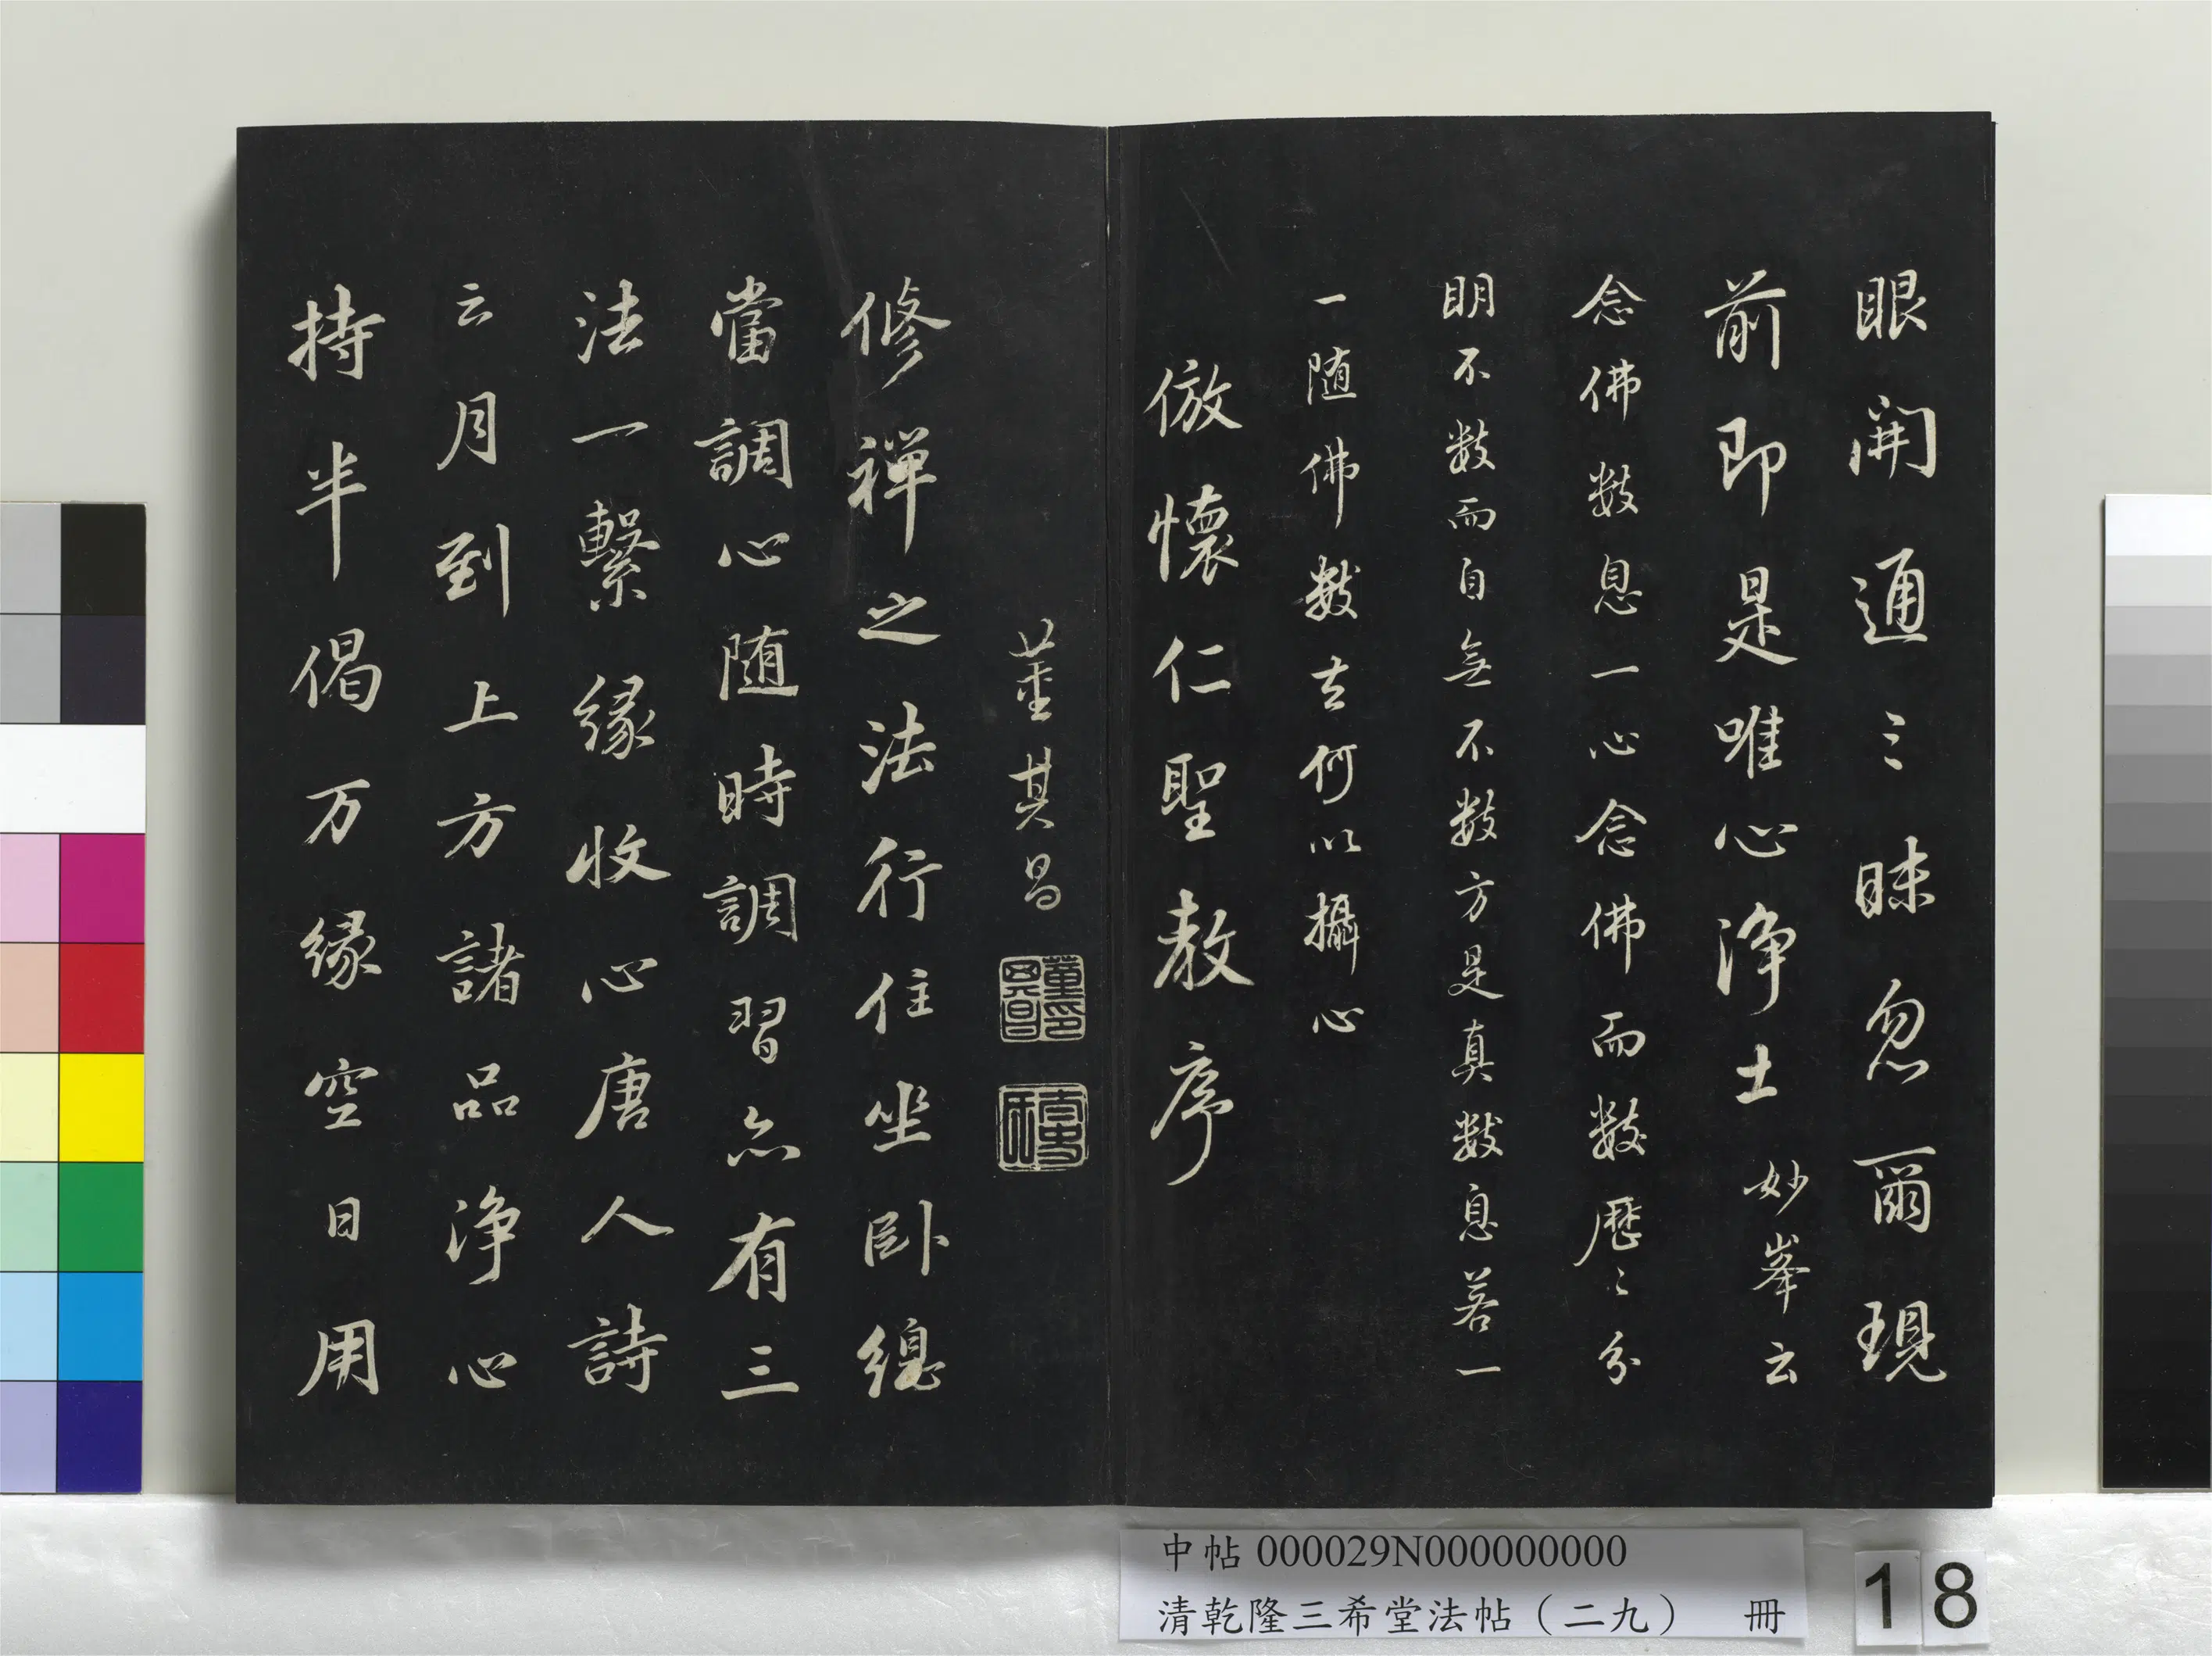 眼開通〻昧忽爾現
前即是唯心淨土妙峯云
念佛數息一心念佛而數歷〻分
明不數而自無不數方是真數息若一
一随佛數去何以攝心
倣懷仁聖教序
董其昌
董其昌印
太史氏
修禅之法行住坐卧總
當調心随時調習亦有三
法一繫緣收心唐人詩
云月到上方諸品淨心
持半偈万緣空日用
中帖 000029N000000000
清乾隆三希堂法帖（二九） 冊
18